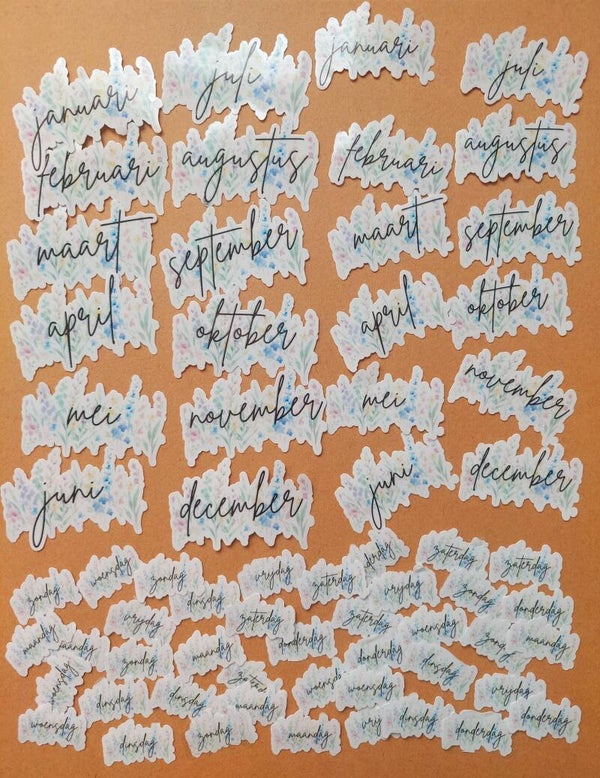 januari
juli
januari
juli
februari
augustus
februari
augustus
maart
september
maart
september
april
oktober
april
oktober
mei
november
mei
november
juni
december
juni
december
zondag
woensdag
zondag
dinsdag
vrijdag
zaterdag
zaterdag
zaterdag
vrijdag
zondag
donderdag
vrijdag
zaterdag
zaterdag
woensdag
maandag
maandag
zondag
maandag
donderdag
donderdag
dinsdag
maandag
woensdag
dinsdag
dinsdag
maandag
woensdag
vrijdag
woensdag
dinsdag
zondag
maandag
dinsdag
donderdag
donderdag